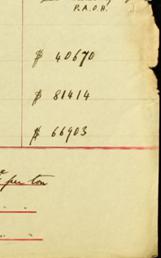 P.A.O.H.
$ 40670
$ 81414
$ 66903
per ton